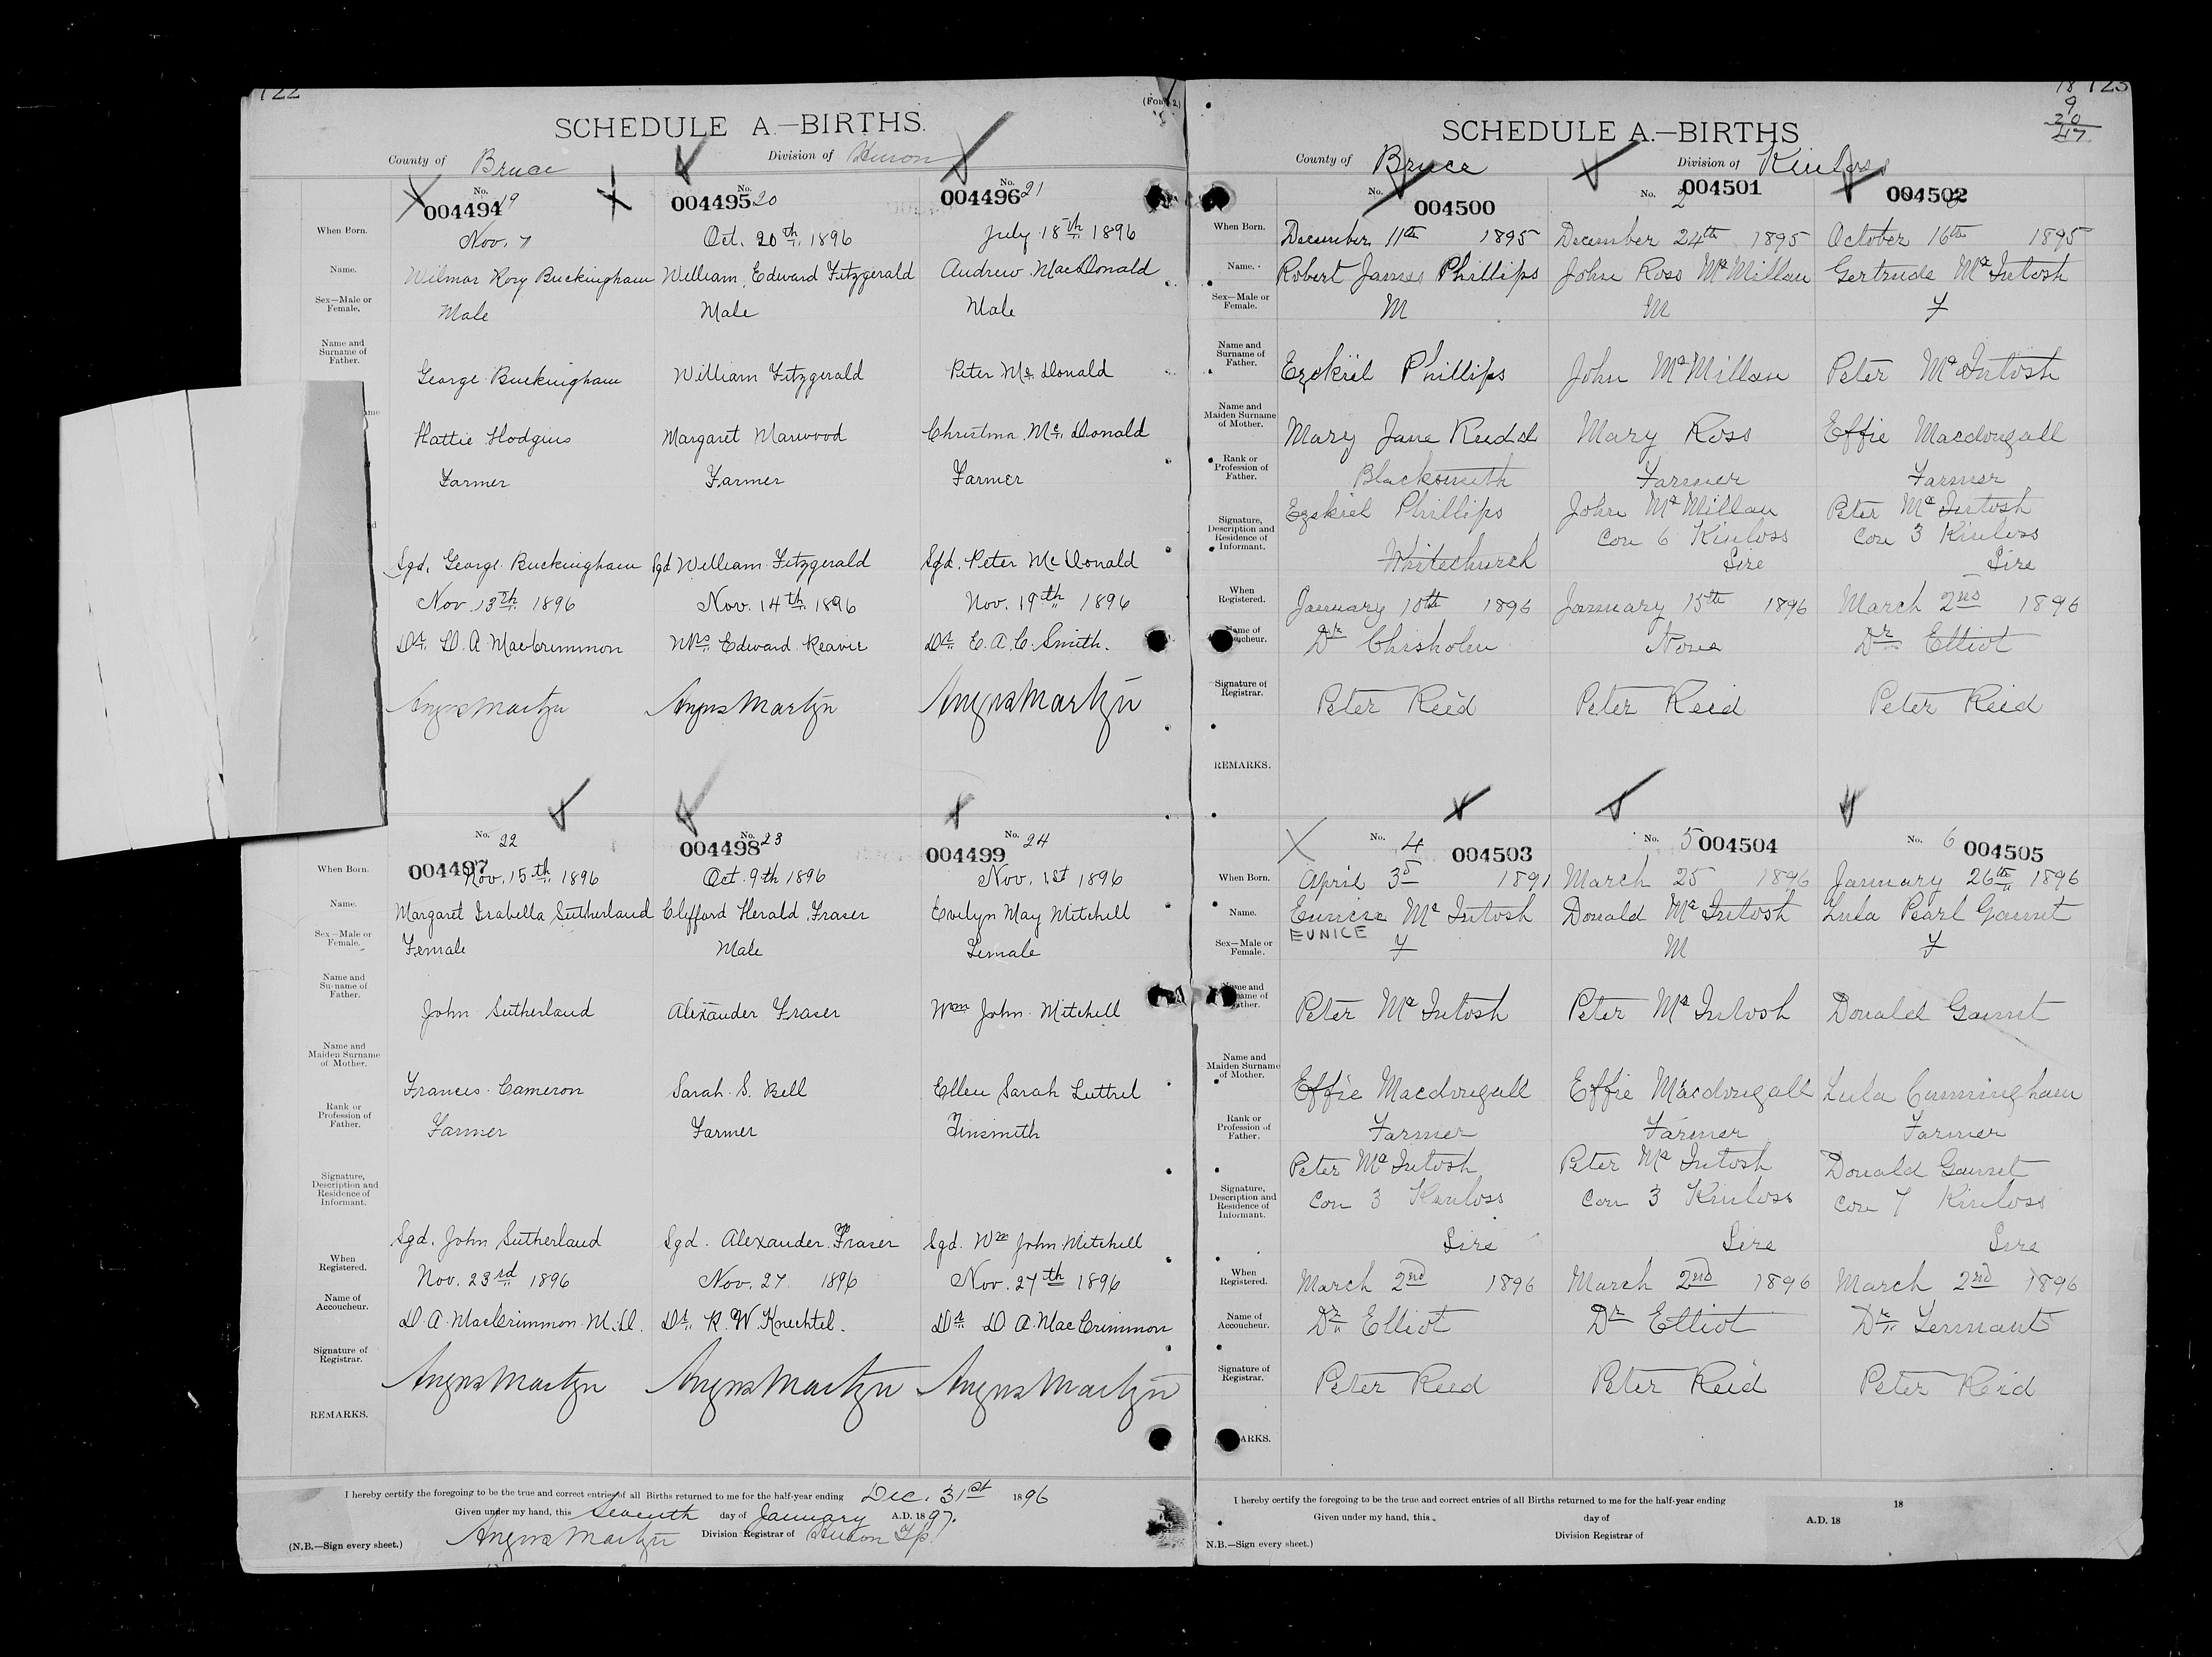 122
(Form 2)
SCHEDULE A.—BIRTHS.
County of Bruce Division of Huron
No. 19 004494 No. 20 004495 No. 21 004496
When Born. Nov. 7 Oct. 20th 1896 July 18th 1896
Name. Wilmar Rory Buckingham William Edward Fitzgerald Andrew MacDonald
Sex—Male or Female. Male Male Male
Name and Surname of Father. George Buckingham William Fitzgerald Peter Mc Donald
Hattie Hodgins Margaret Marwood Christina Mc Donald
Farmer Farmer Farmer
Sgd. George Buckingham Sgd William Fitzgerald Sgd. Peter Mc Donald
Nov. 13th 1896 Nov. 14th 1896 Nov. 19th 1896
Dr. D. A MacCrimmon Mrs Edward Reavie Dr. E. A. C. Smith.
Angus Martyn Angus Martyn Angus Martyn
No. 22 004497 No. 23 004498 No. 24 004499
When Born. Nov. 15th 1896 Oct. 9th 1896 Nov. 1st 1896
Name. Margaret Isabella Sutherland Clifford Herald Fraser Evelyn May Mitchell
Sex—Male or Female. Female Male Female
Name and Surname of Father. John Sutherland Alexander Fraser Wm John Mitchell
Name and Maiden Surname of Mother. Frances Cameron Sarah S. Bell Ellen Sarah Luttrel
Rank or Profession of Father. Farmer Farmer Tinsmith
Signature, Description and Residence of Informant. Sgd. John Sutherland Sgd. Alexander Fraser Sgd. Wm John Mitchell
When Registered. Nov. 23rd 1896 Nov. 27 1896 Nov. 27th 1896
Name of Accoucheur. D. A. MacCrimmon M.D. Dr. R. W. Knechtel. Dr D A. MacCrimmon
Signature of Registrar. Angus Martyn Angus Martyn Angus Martyn
REMARKS.
I hereby certify the foregoing to be the true and correct entries of all Births returned to me for the half-year ending Dec. 31st 1896
Given under my hand, this Seventh day of January A.D. 1897.
Angus Martyn Division Registrar of Huron Tp.
(N.B.—Sign every sheet.)
123
18
9
20
47
SCHEDULE A.—BIRTHS
County of Bruce Division of Kinloss
No. 004500 No. 2 004501 004502
When Born. December 11th 1895 December 24th 1895 October 16th 1895
Name. Robert James Phillips John Ross McMillan Gertrude McIntosh
Sex—Male or Female. M M F
Name and Surname of Father. Ezekiel Phillips John McMillan Peter McIntosh
Name and Maiden Surname of Mother. Mary Jane Rudd Mary Ross Effie Macdougall
Rank or Profession of Father. Blacksmith Farmer Farmer
Signature, Description and Residence of Informant. Ezekiel Phillips John McMillan Peter McIntosh
Whitechurch Con 6 Kinloss Con 3 Kinloss
Sire Sire
When Registered. January 10th 1896 January 15th 1896 March 2nd 1896
Name of Accoucheur. Dr Chisholm None Dr Elliot
Signature of Registrar. Peter Reid Peter Reid Peter Reid
REMARKS.
No. 4 004503 No. 5 004504 No. 6 004505
When Born. April 3d 1891 March 25 1896 January 26th 1896
Name. Eunice McIntosh Donald McIntosh Lula Pearl Gaunt
EUNICE
Sex—Male or Female. F M F
Name and Surname of Father. Peter McIntosh Peter McIntosh Donald Gaunt
Name and Maiden Surname of Mother. Effie Macdougall Effie Macdougall Lula Cunningham
Rank or Profession of Father. Farmer Farmer Farmer
Signature, Description and Residence of Informant. Peter McIntosh Peter McIntosh Donald Gaunt
Con 3 Kinloss Con 3 Kinloss Con 7 Kinloss
Sire Sire Sire
When Registered. March 2nd 1896 March 2nd 1896 March 2nd 1896
Name of Accoucheur. Dr Elliot Dr Elliot Dr Tennant
Signature of Registrar. Peter Reid Peter Reid Peter Reid
REMARKS.
I hereby certify the foregoing to be the true and correct entries of all Births returned to me for the half-year ending 18
Given under my hand, this day of A.D. 18
Division Registrar of
N.B.—Sign every sheet.)